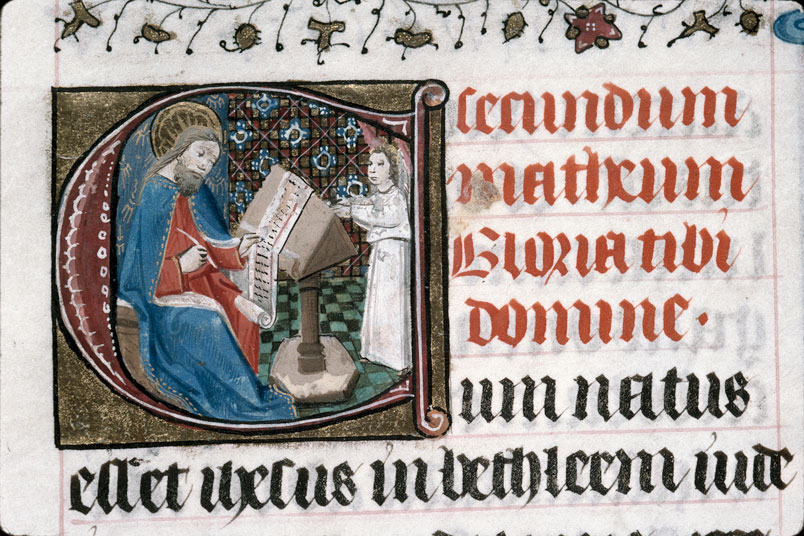 secundum
matheum
Gloria tibi
domine.
Cum natus
esset ihesus in bethleem iude